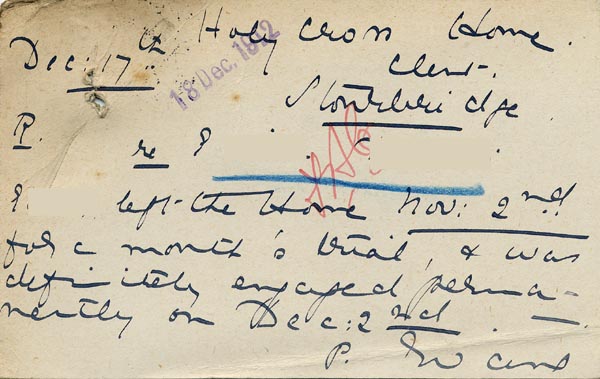 Holy Cross Home.
Dec: 17th
18 Dec. 1892
Clent.
Stourbridge
R.
re
left the Home Nov: 2nd
for a month's trial, & was
definitely engaged perma-
nently on Dec: 2nd.
P.